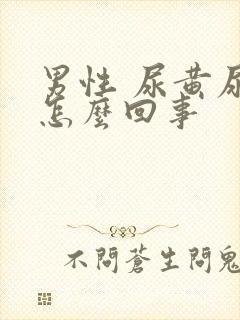 男性 尿黄尿
怎麼回事
不問蒼生問鬼